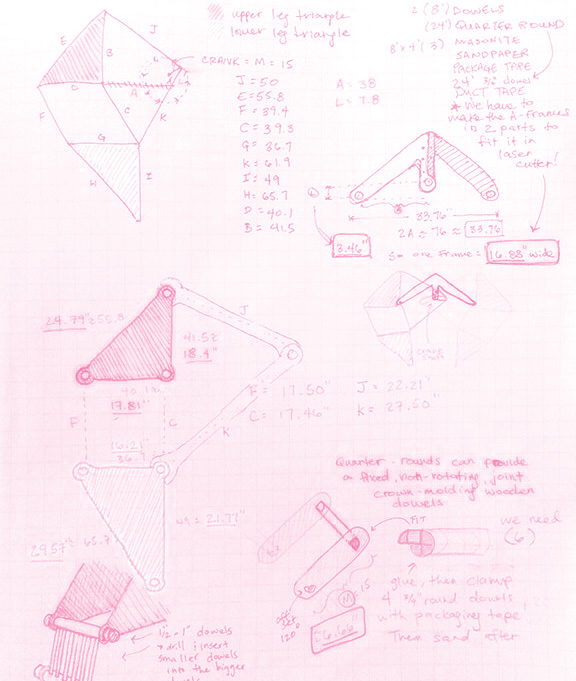 upper leg triangle
lower leg triangle
CRANK = M = 15
J = 50
E = 55.8
F = 39.4
C = 39.3
G = 36.7
K = 61.9
I = 49
H = 65.7
D = 40.1
B = 41.5
A = 38
L = 7.8
2 (8') DOWELS
(24') QUARTER ROUND
8'x4' (3) MASONITE
SANDPAPER
PACKAGE TAPE
24' dowel
DUCT TAPE
* We have to
make the A-Frames
in 2 parts to
fit it in
laser
cutter!
E
J
B
A
F
C
K
G
H
I
33.76"
2A ≈ 76 ≈ 33.76
3.46"
one frame = 16.88" wide
24.79" ≈ 55.8
41.5 ≈
18.4"
J
40.1 ≈
17.81"
F
C
K
F = 17.50"
C = 17.46"
J = 22.21"
K = 27.50"
49 ≈ 21.77"
≈ 65.7
Quarter-rounds can provide
a fixed, non-rotating joint
crown-molding wooden
dowels
FIT
we need
(6)
M 15
6.66"
120°
glue, then clamp
4 round dowels
with packaging tape
Then sand after
1/2 - 1" dowels
* drill & insert
smaller dowels
into the bigger